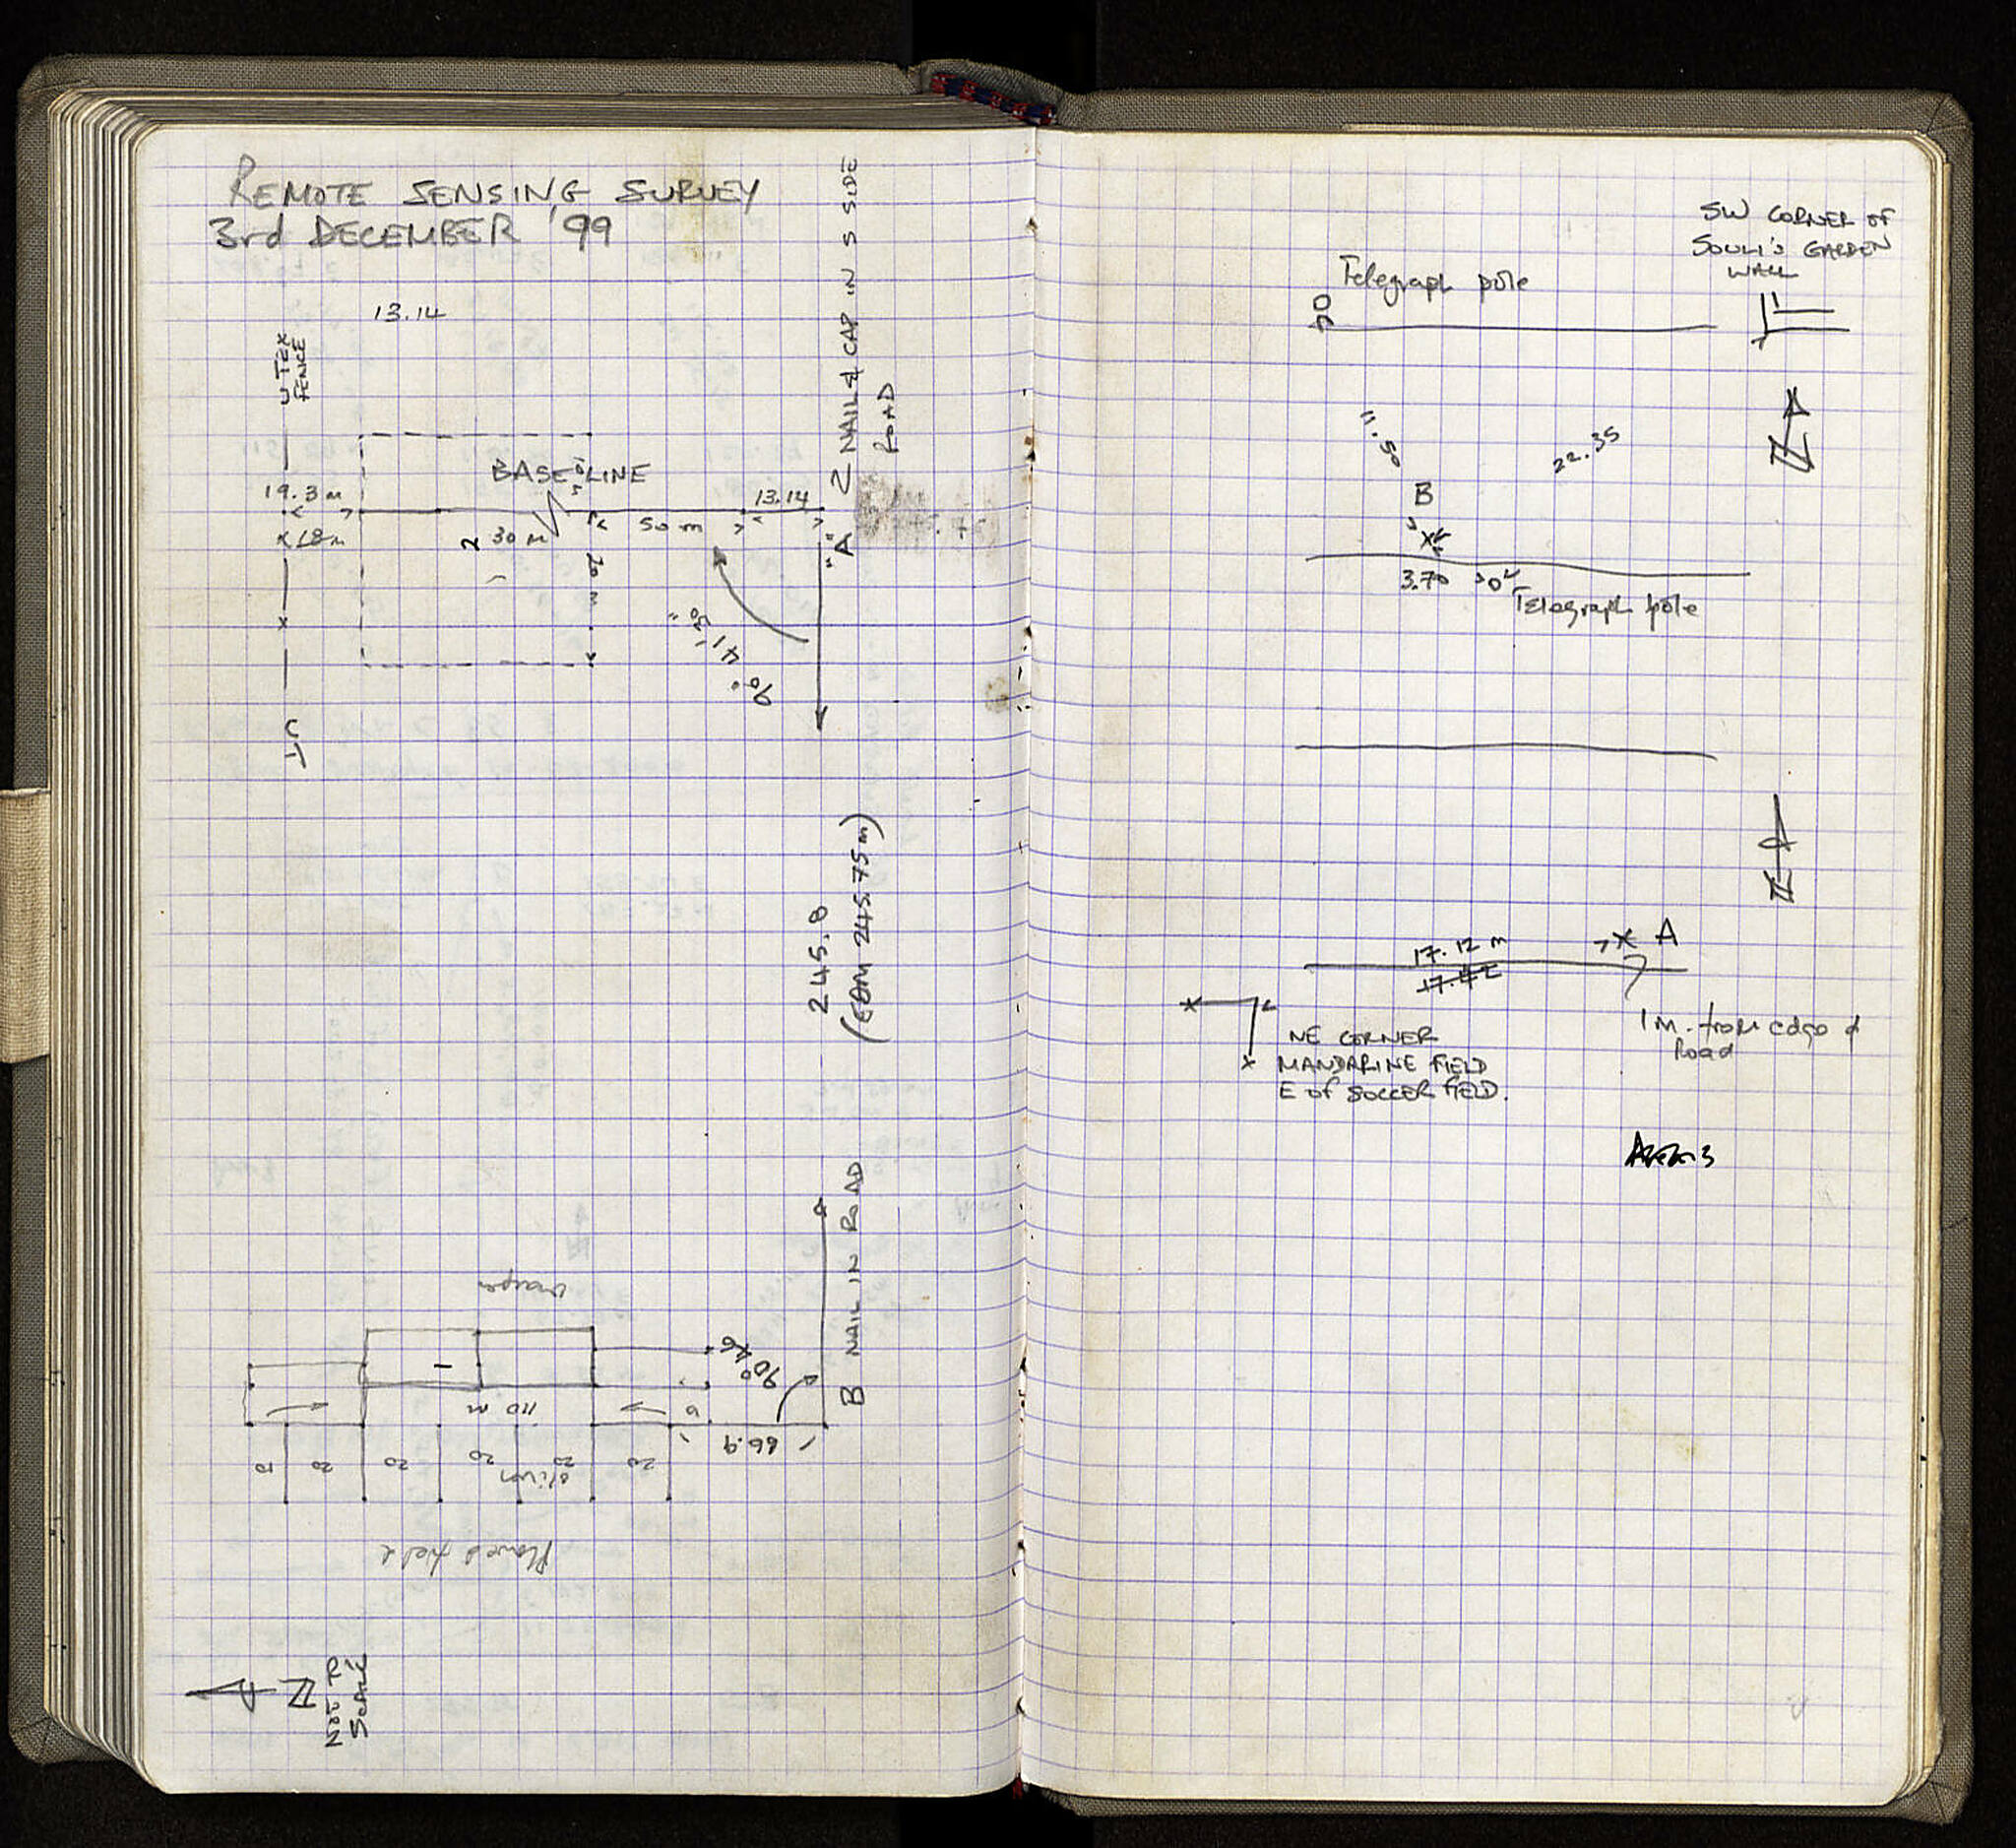 REMOTE SENSING SURVEY
3rd DECEMBER '99
13.14
FENCE
BASE LINE
19.3 m
18 m
30 m
50 m
13.14
20 m
"A"
NAIL & CAP IN S SIDE
ROAD
90° 41' 30"
245.8
(EDM 245.75m)
B NAIL IN ROAD
90°
110 m
66.9
10
20
20
20
20
20
Plowed field
N
NOT TO
SCALE
SW CORNER OF
SOULI'S GARDEN
WALL
Telegraph pole
11.50
22.35
N
B
3.70
Telegraph pole
N
17.12 m
A
1 m. from edge of
Road
NE CORNER
MANDARINE FIELD
E of SOCCER FIELD.